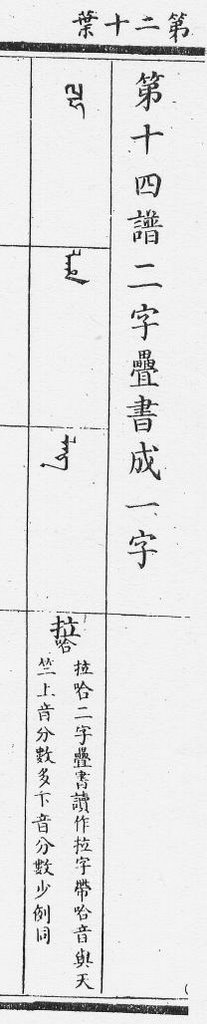 第二十葉
第十四譜二字疊書成一字
拉哈
拉哈二字疊書讀作拉字帶哈音與天
竺上音分數多下音分數少例同